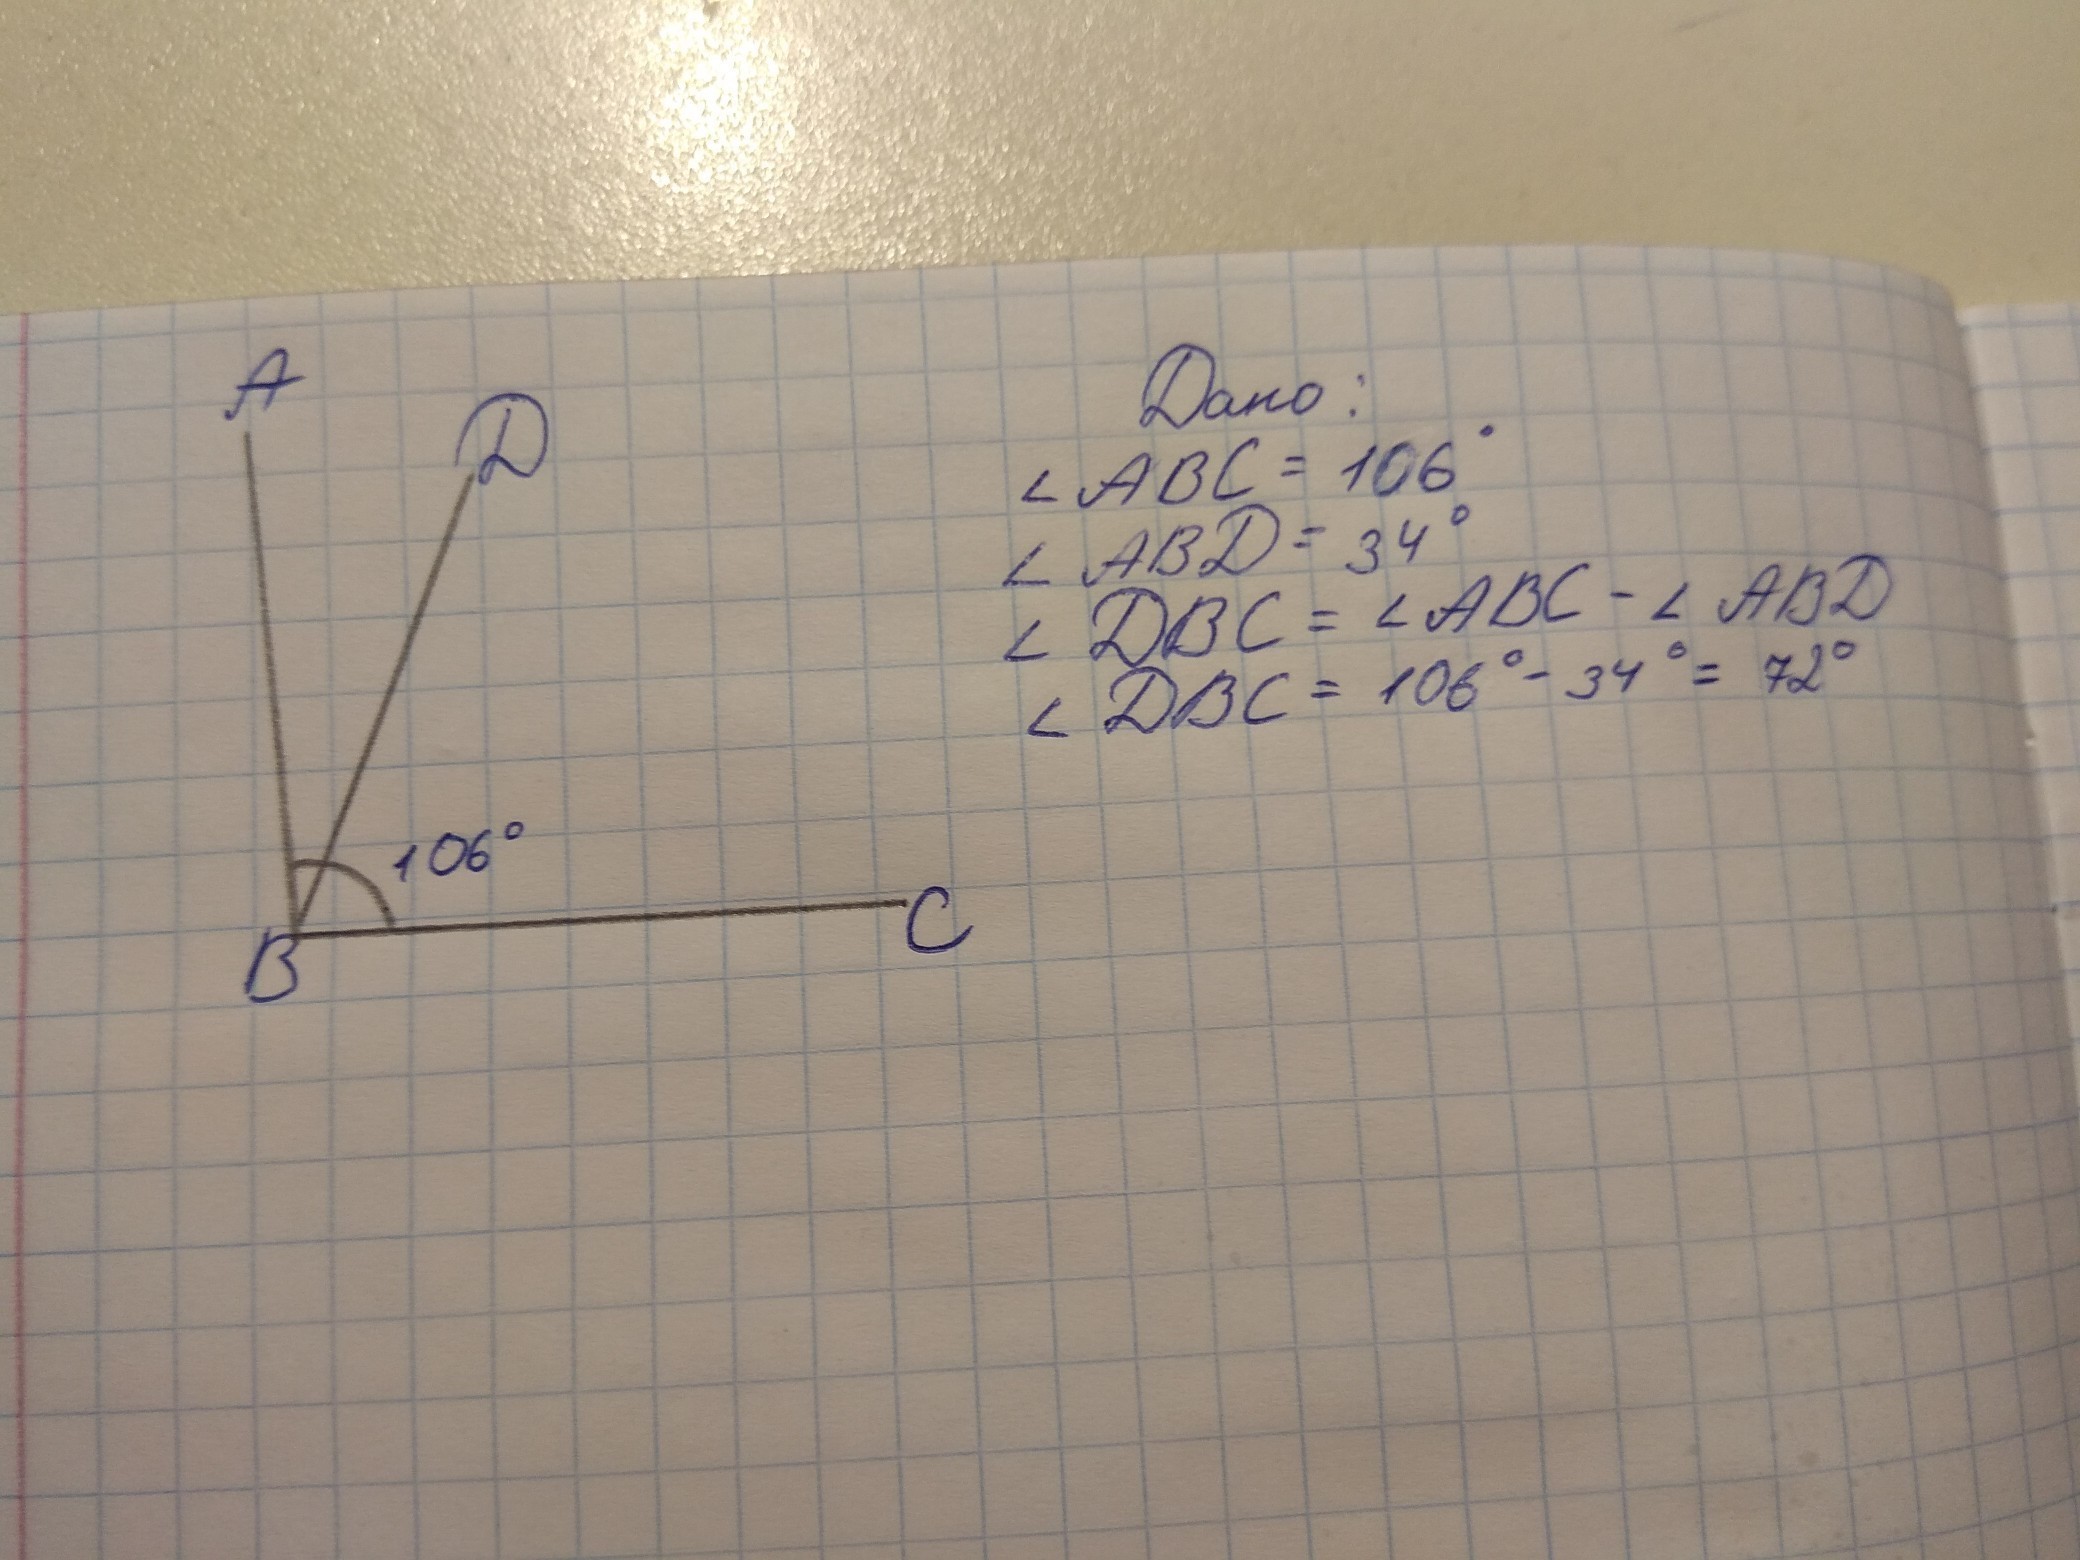 A
D
106°
B
C
Дано:
∠ABC = 106°
∠ABD = 34°
∠DBC = ∠ABC - ∠ABD
∠DBC = 106° - 34° = 72°